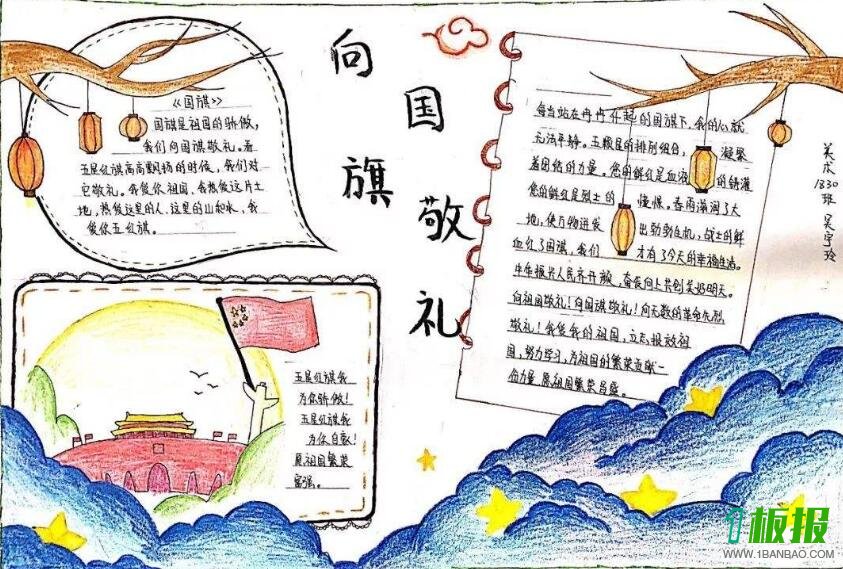 向国旗敬礼
《国旗》
国旗是祖国的骄傲,
我们向国旗敬礼。看
五星红旗高高飘扬的时候,我们对
它敬礼。我爱你祖国,我热爱这片土
地,热爱这里的人,这里的山和水,我
爱你五红旗。
五星红旗我
为你骄傲!
五星红旗我
为你自歌!
愿祖国繁荣
富强。
每当站在冉冉升起的国旗下,我的心就
无法平静。五颗星的排列组合, 凝聚
着团结的力量。您的鲜红是血液 的铸灌
您的鲜红是烈士的 憧憬。春雨滋润了大
地,使万物迸发 出勃勃生机,战士的鲜
血红了国旗,我们 才有了今天的幸福生活。
牛年振兴人民齐开颜,奋发向上共创美好明天。
向祖国敬礼!向国旗敬礼!向无数的革命先烈
敬礼!我爱我的祖国,立志报效祖
国,努力学习,为祖国的繁荣贡献一
份力量,愿祖国繁荣昌盛。
美术1830班 吴宇玲
1板报
WWW.1BANBAO.COM